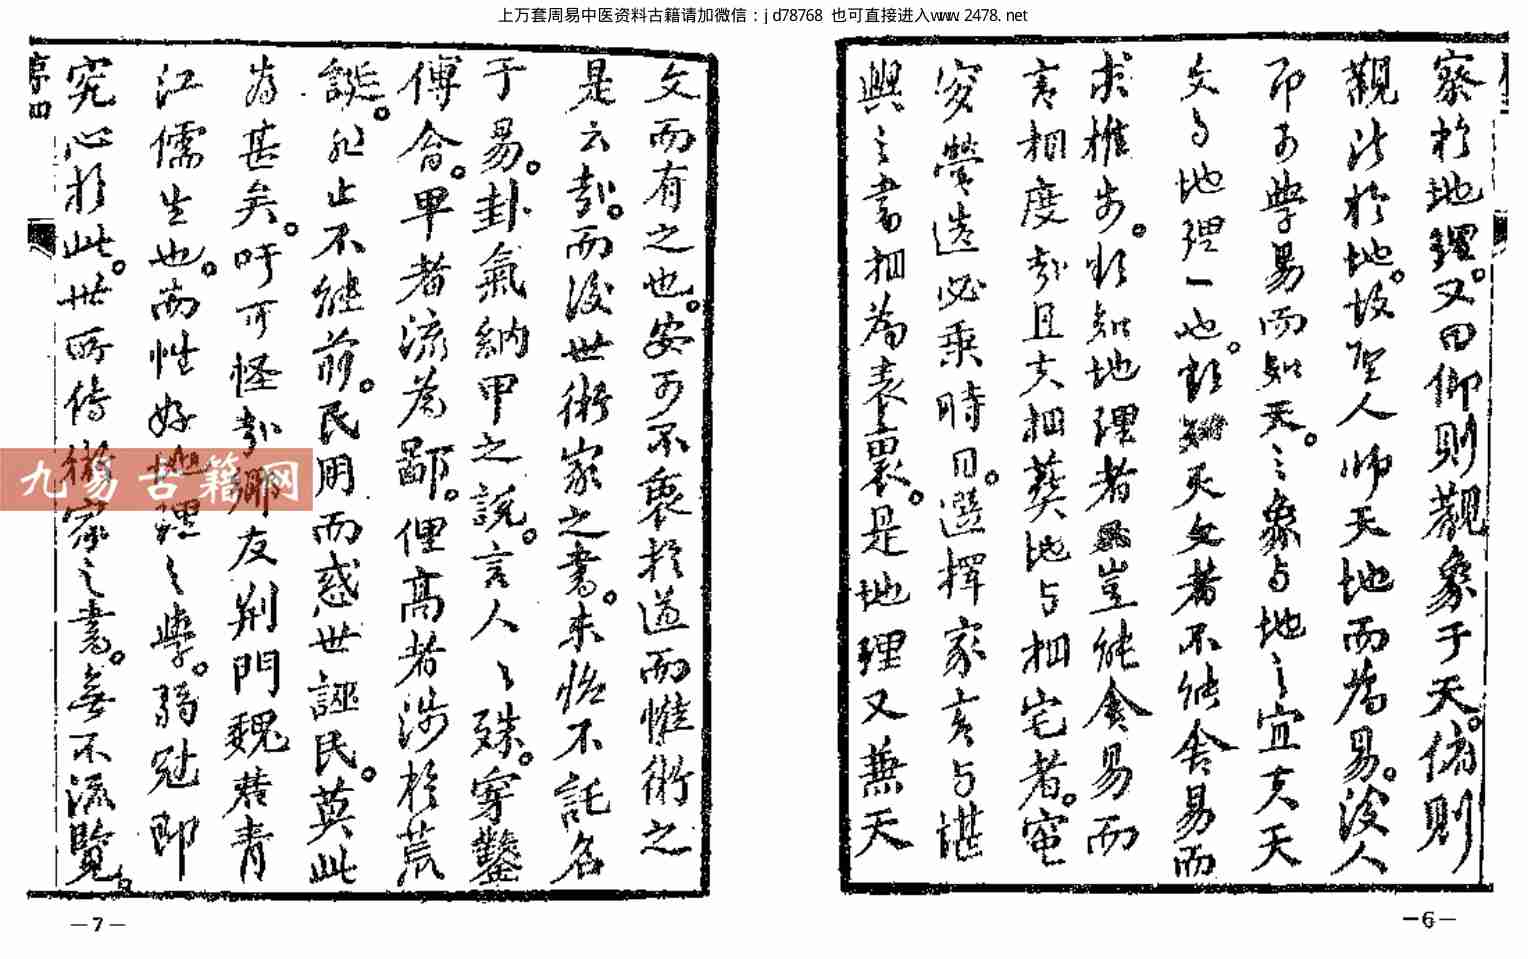 上万套周易中医资料古籍请加微信：jd78768 也可直接进入www.2478.net
察於地理。又曰仰則觀象于天。俯則
觀法於地。故聖人師天地而為易。後人
即易學易而知天之象与地之宜夫天
文与地理一也。欲知天文者不能舍易而
求推步。欲知地理者豈能舍易而
言相度哉且夫相葬地与相宅者。窀
穸營造必乘時日。選擇家言与諶
輿之書相為表裏。是地理又兼天
文而有之也。安可不衷於道而惟術之
是云哉。而後世術家之書。未嘗不託名
于易。卦氣納甲之說。言人人殊。穿鑿
傅會。卑者流為鄙。俚高者涉於荒
誕。列止不繼前。民用而惑世誣民。莫此
為甚矣。吁可怪哉卿友荆門魏君青
江儒生也。而性好地理之學。弱冠即
究心於此。世所傳術家之書。無不流覽。
序四
九易古籍网
—7—
—6—